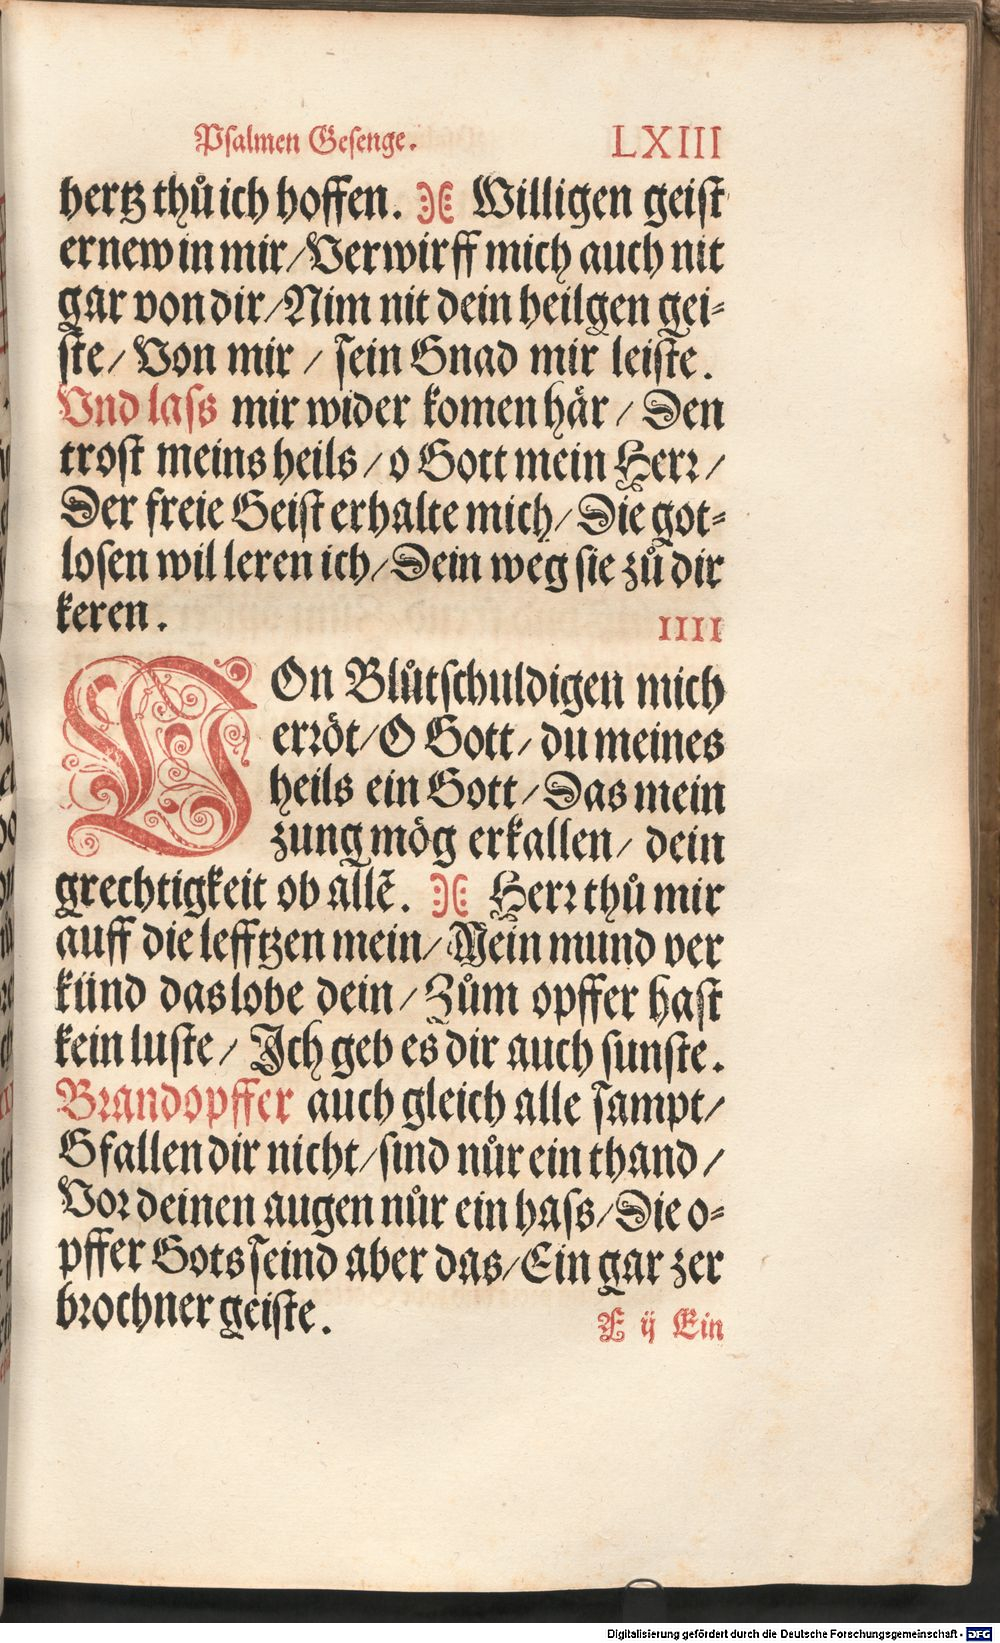 Psalmen Gesenge. LXIII
hertz thů ich hoffen. Willigen geist
ernew in mir/Verwirff mich auch nit
gar von dir/Nim nit dein heilgen gei-
ste/ Von mir / sein Gnad mir leiste.
Vnd lass mir wider komen här / Den
trost meins heils / o Gott mein Herr /
Der freie Geist erhalte mich/ Die got-
losen wil leren ich/Dein weg sie zů dir
keren.
IIII
VOn Blůtschuldigen mich
erröt/O Gott/ du meines
heils ein Gott/Das mein
zung mög erkallen/ dein
grechtigkeit ob allē. Herr thů mir
auff die lefftzen mein/Mein mund ver
künd das lobe dein/ Zům opffer hast
kein luste/ Ich geb es dir auch sunste.
Brandopffer auch gleich alle sampt/
Gfallen dir nicht/sind nůr ein thand/
Vor deinen augen nůr ein hass/Die o-
pffer Gots seind aber das/Ein gar zer
brochner geiste.
F ij Ein
Digitalisierung gefördert durch die Deutsche Forschungsgemeinschaft - DFG